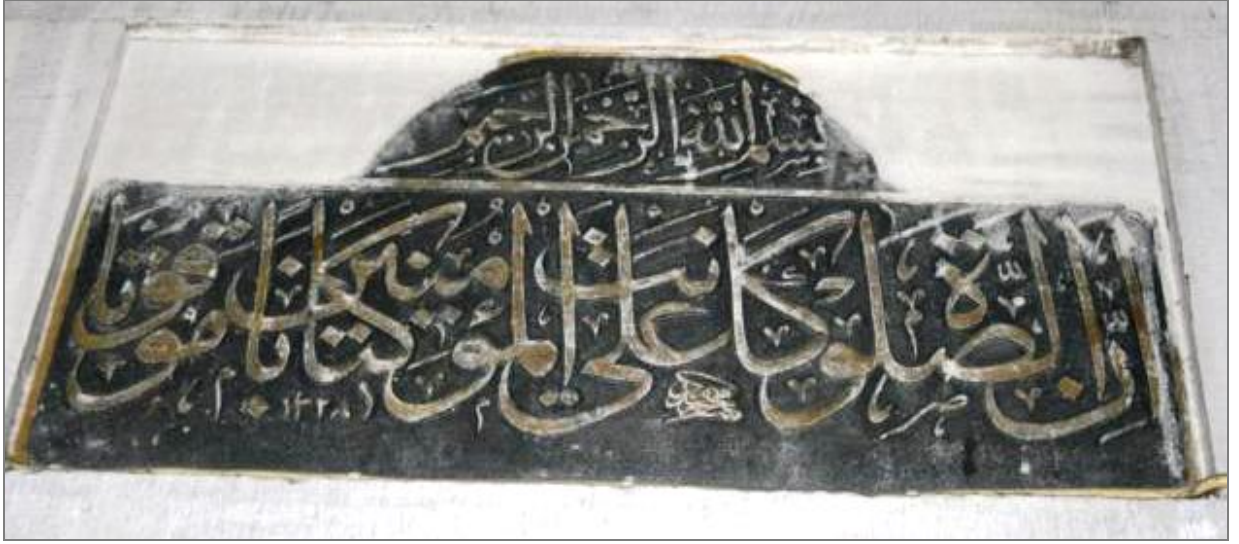 بسم الله الرحمن الرحيم
إن الصلوة كانت على المؤمنين كتابا موقوتا
١٣٢٨